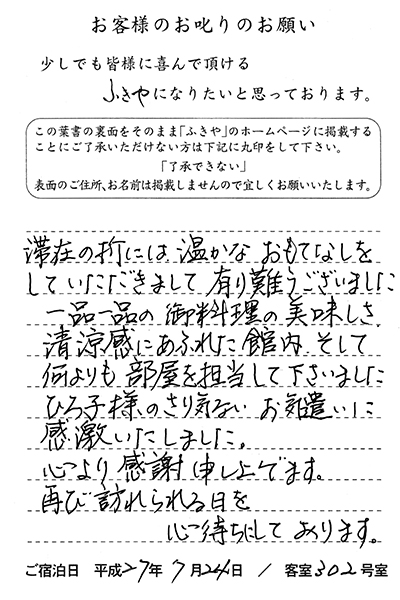 お客様のお叱りのお願い
少しでも皆様に喜んで頂ける
ふきやになりたいと思っております。
この葉書の裏面をそのまま「ふきや」のホームページに掲載する
ことにご了承いただけない方は下記に丸印をして下さい。
「了承できない」
表面のご住所、お名前は掲載しませんので宜しくお願いいたします。
滞在の折には 温かな おもてなしを
していただきまして 有り難うございました
一品一品の 御料理の 美味しさ
清涼感にあふれた 館内 そして
何よりも 部屋を担当して下さいました
ひろ子様のさり気ない お気遣いに
感激いたしました。
心より 感謝 申し上げます。
再び 訪れられる日を
心待ちにして おります。
ご宿泊日 平成27年 7月24日 / 客室302号室